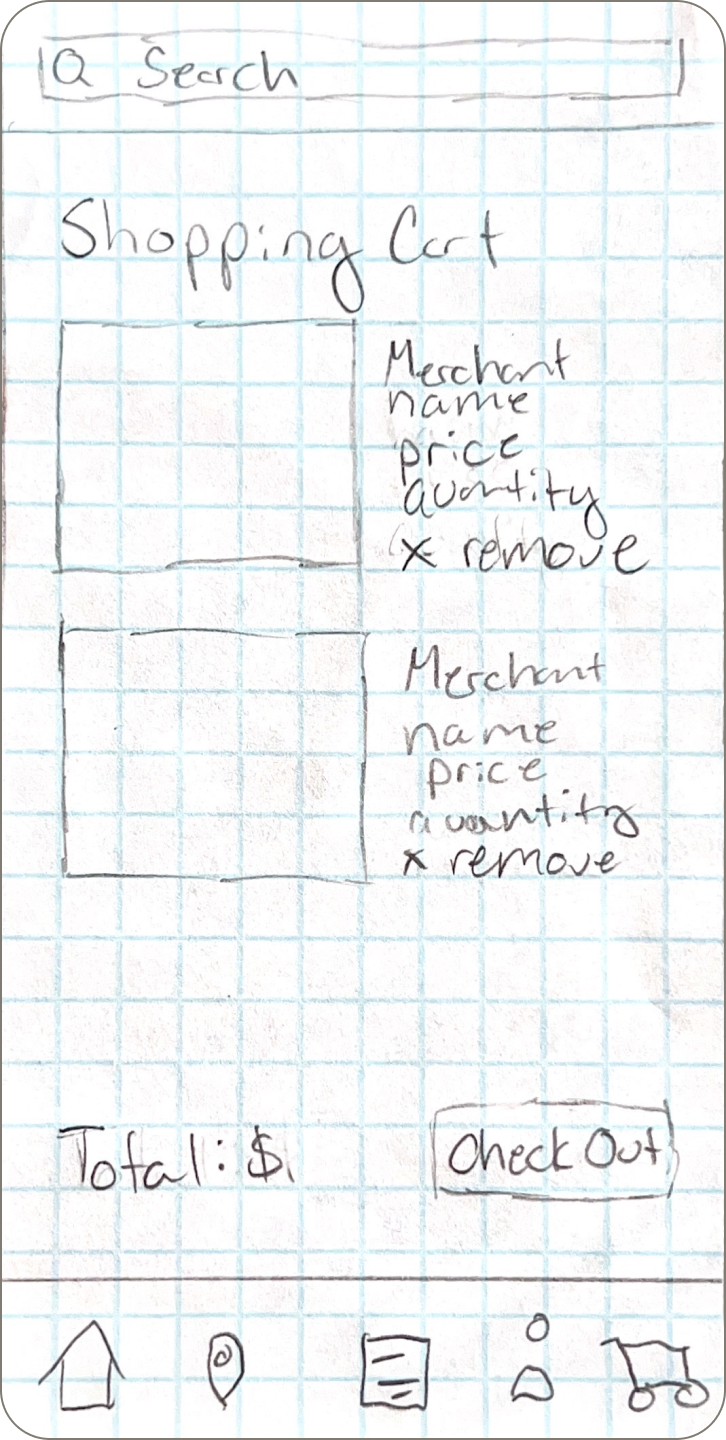 Search
Shopping Cart
Merchant
name
price
quantity
x remove
Merchant
name
price
quantity
x remove
Total: $
Check Out